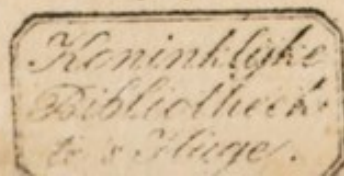 Koninklijke
Bibliotheek
te s Hage.